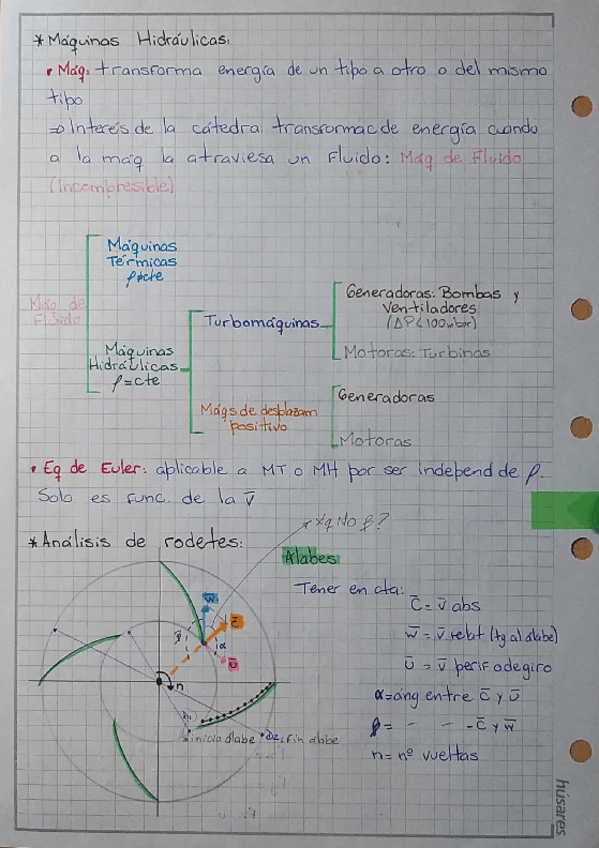 * Máquinas Hidráulicas:
• Máq: transforma energía de un tipo a otro o del mismo
tipo
⇒ Interés de la cátedra: transformac de energía cuando
a la máq la atraviesa un Fluido: Máq de Fluido
(Incompresible)
Máq de
Fluido
Máquinas
Térmicas
ρ≠cte
Máquinas
Hidráulicas
ρ=cte
Turbomáquinas
Generadoras: Bombas y
Ventiladores
(ΔP<100mbar)
Motoras: Turbinas
Máqs de desplazam
positivo
Generadoras
Motoras
• Eq de Euler: aplicable a MT o MH por ser independ de ρ.
Solo es func. de la v̄
xq No β?
* Análisis de rodetes:
Alabes
Tener en cta:
C̄ = v̄ abs
w̄ = v̄ relat (tg al alabe)
Ū = v̄ perif o de giro
α = ang entre C̄ y Ū
β = - - - C̄ y w̄
n = nº vueltas
w̄
C̄
β
α
Ū
n
inicio alabe
d2: Fin alabe
húsares